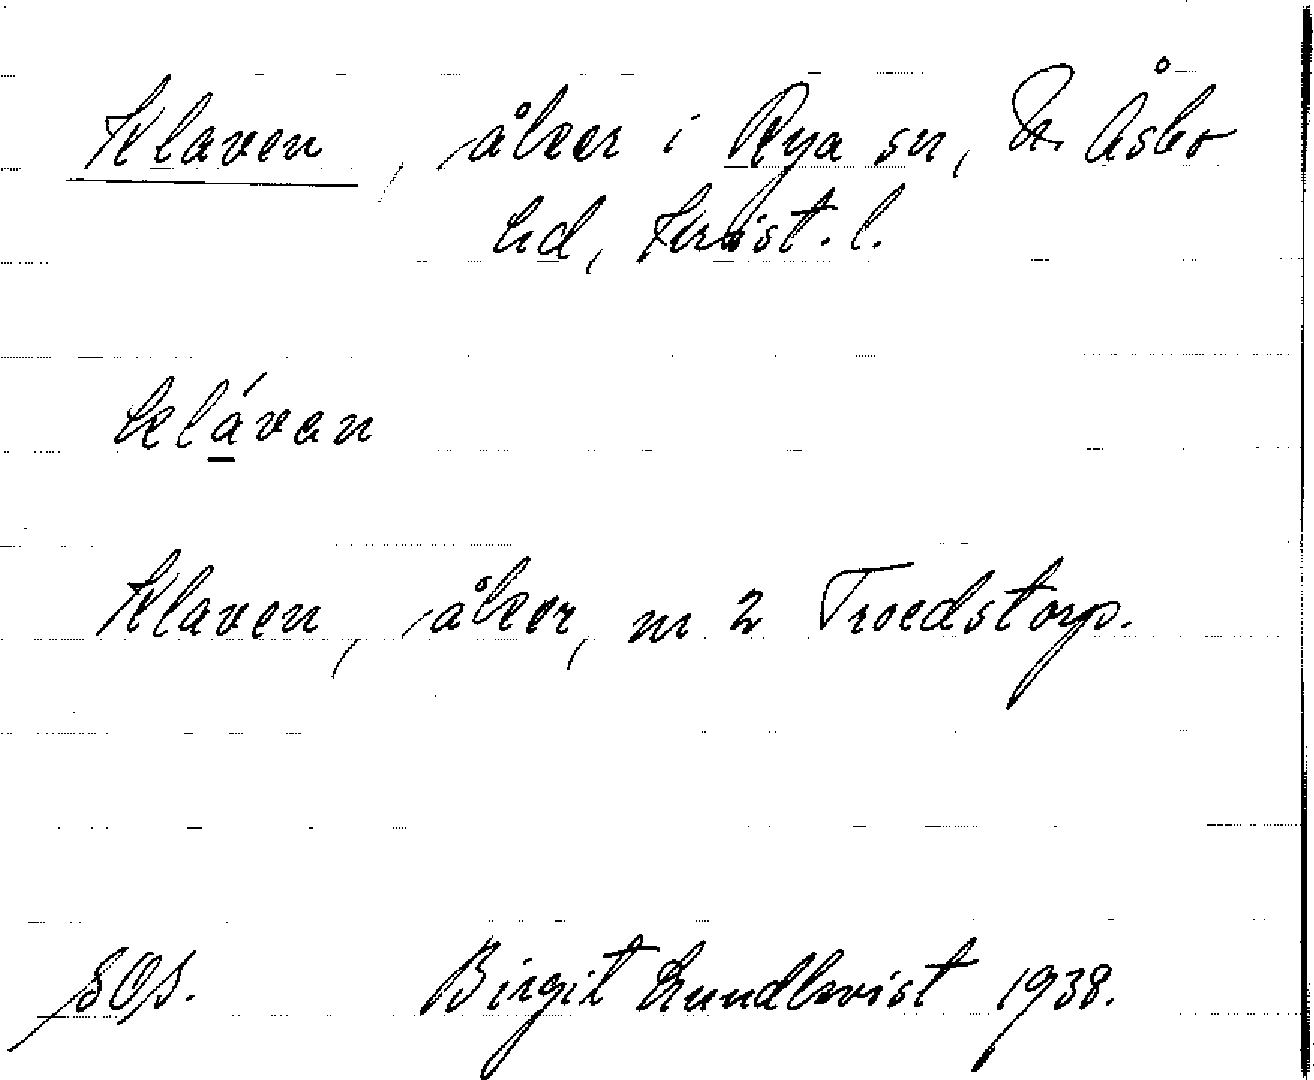 Klaven, åker i Rya sn, N. Åsbo
hd, Krist. l.
klávan
Klaven, åker, nr 2 Troedstorp.
SOS. Birgit Lundkvist 1938.